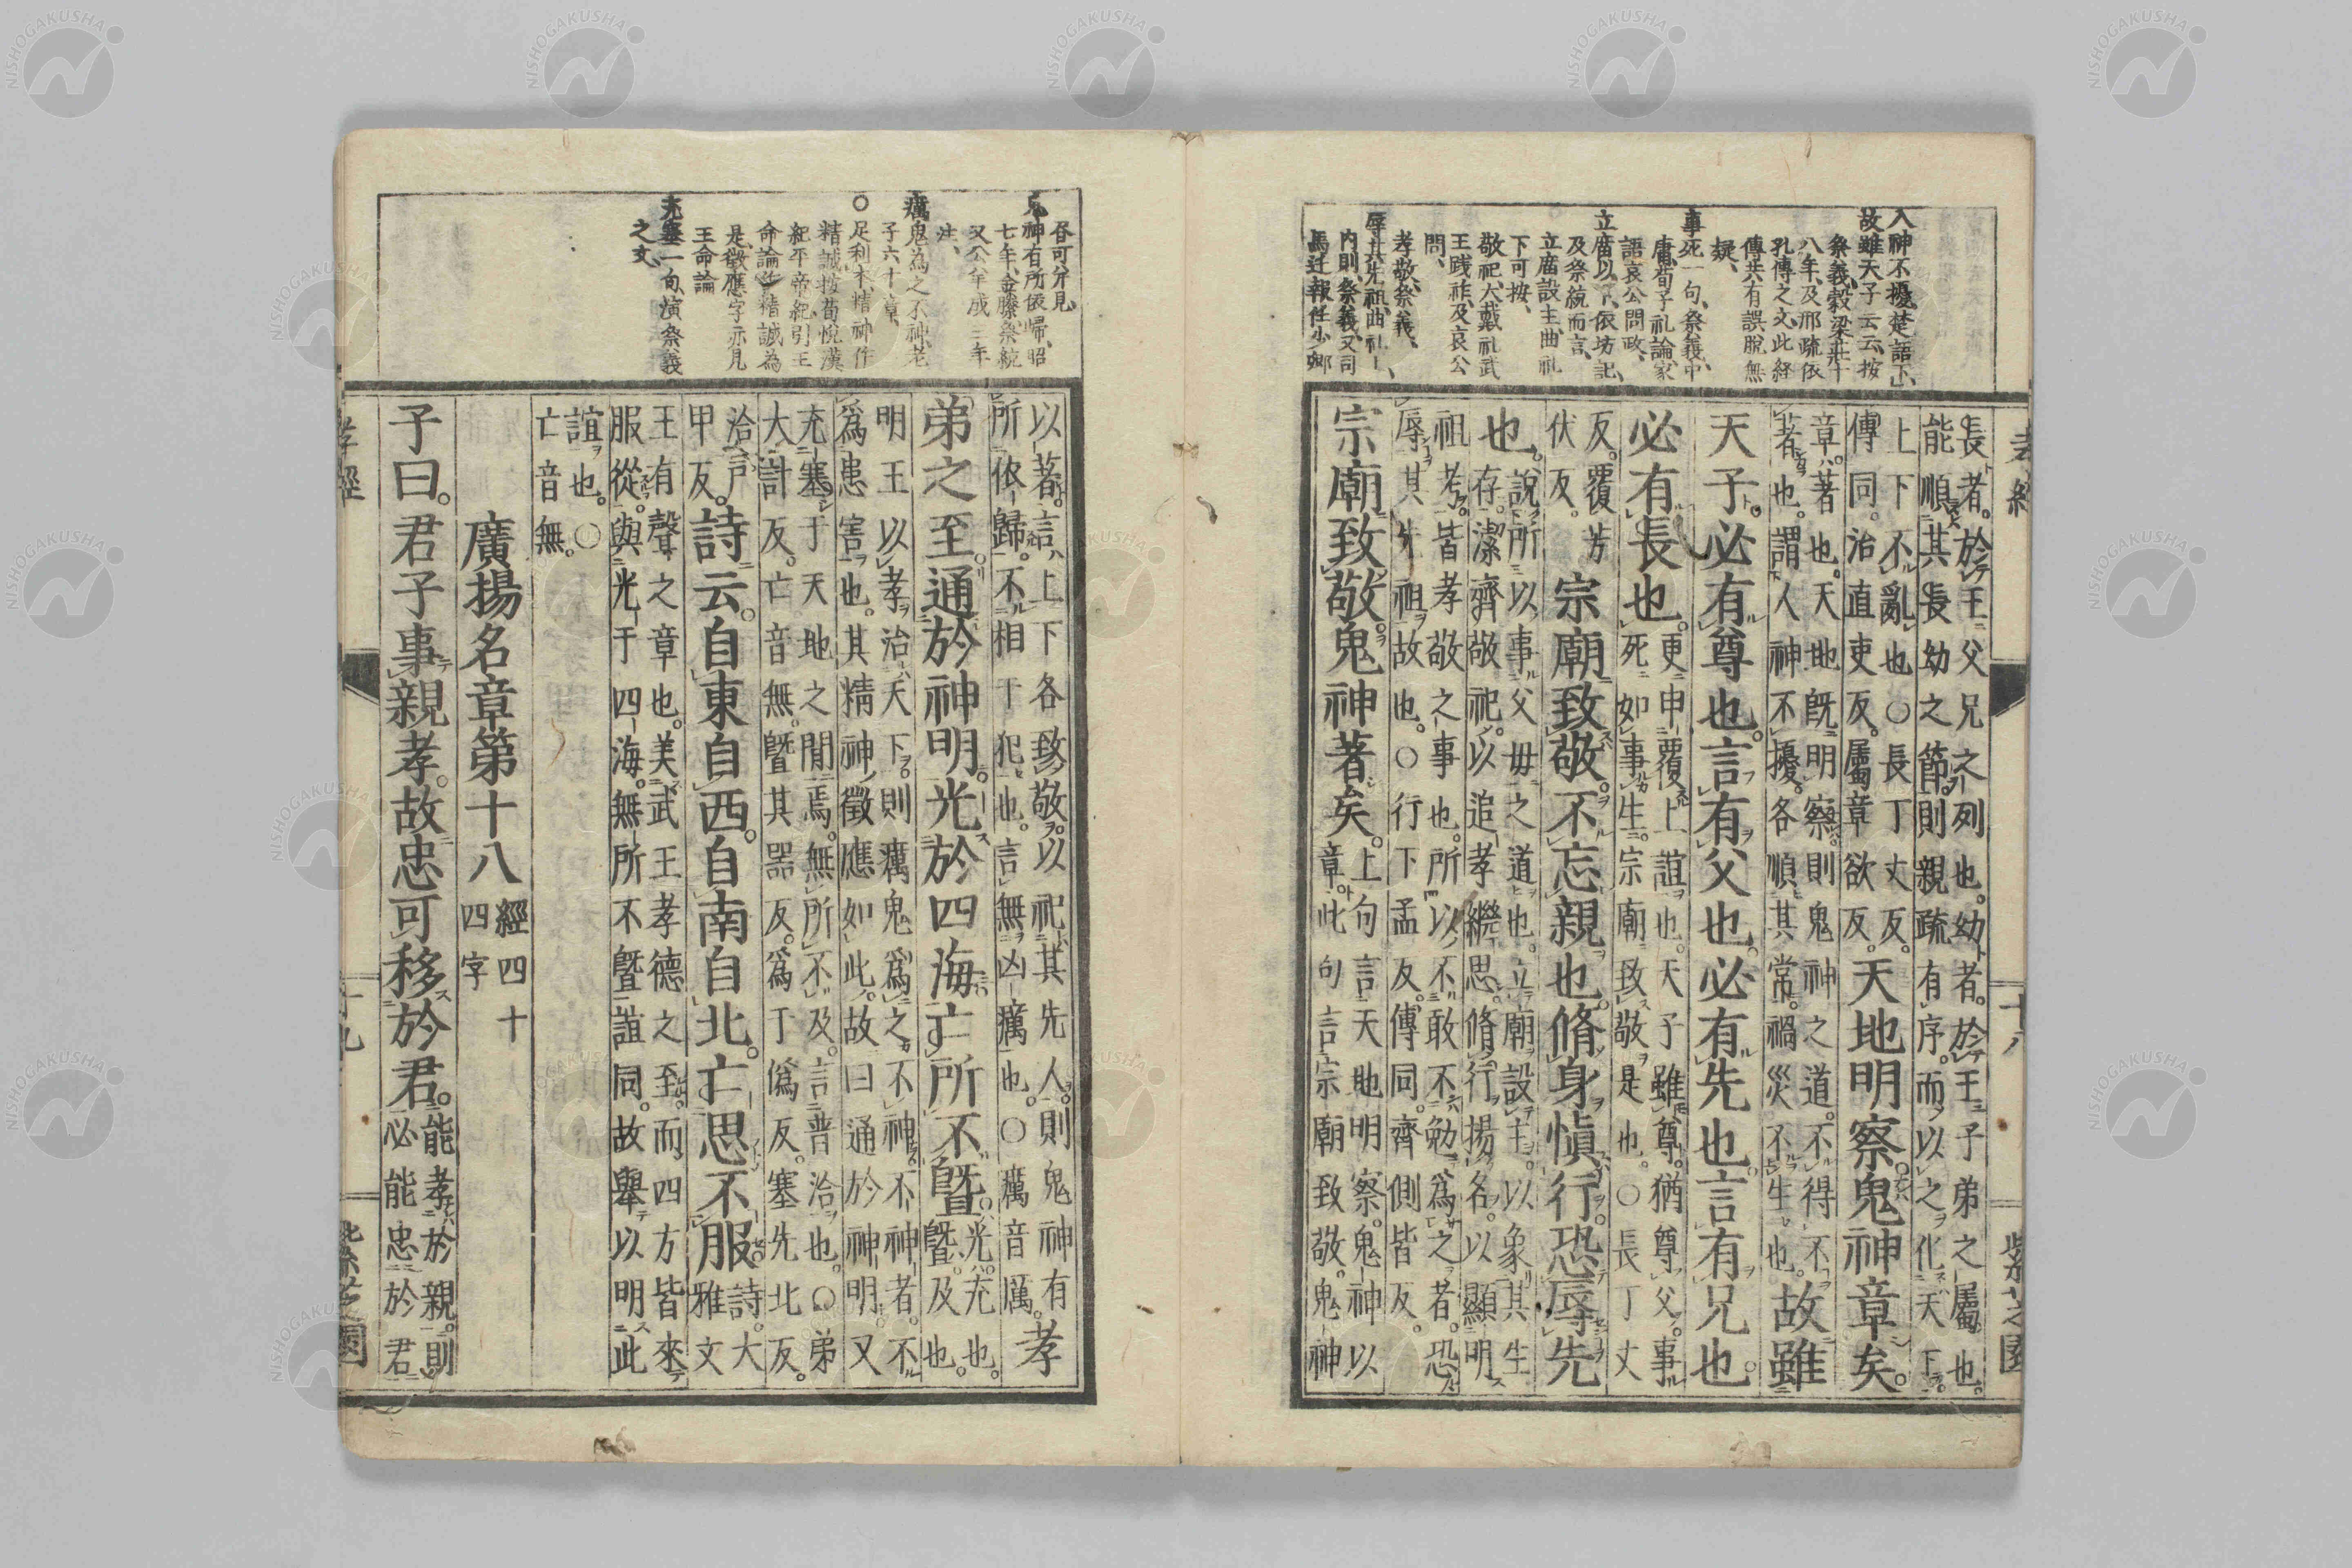 人神不擾、楚語下、
故雖天子云云、按
祭義、穀梁莊十
八年、及邢疏依
孔傳之文、此経
傳共有誤脫無
疑、
事死一句、祭義、中
庸、荀子礼論、家
語哀公問政、
立廟以下、依坊記、
及祭統而言、
立廟設主、曲礼
下可按、
敬祀、大戴礼武
王踐祚、及哀公
問、
孝敬、祭義、
辱其先祖、曲礼上、
内則、祭義、又司
馬迁報任少卿
孝經
十八
紫芝園
長者。於王父兄之列也。幼者。於王子弟之屬也。
能順其長幼之節。則親疏有序。而以之化天下。
上下不亂也○長丁丈反。
傳同。治直吏反。屬章欲反。
天地明察。鬼神章矣。
章。著也。天地既明察。則鬼神之道。不得不
著也。謂人神不擾。各順其常。禍災不生也。
故雖
天子。必有尊也。言有父也。必有先也。言有兄也。
必有長也。
更申覆上誼也。天子雖尊。猶尊父。事
死如事生。宗廟致敬是也。○長丁丈
反。覆芳
伏反。
宗廟致敬。不忘親也。脩身愼行。恐辱先
也。
說所以事父毋之道也。立廟設主。以象其生
存。潔齊敬祀。以追孝繼思。脩行揚名。以顯明
祖考。皆孝敬之事也。所以不敢不勉爲之者。恐
辱其先祖故也。○行下孟反。傳同。齊側皆反。
宗廟致敬。鬼神著矣。
上句言天地明察。鬼神以
章。此句言宗廟致敬。鬼神
昝可分見
鬼神有所依帰、昭
七年、金縢、祭統
又公羊成三年
注、
癘鬼為之不神、老
子六十章、
○足利本、精神作
精誠、按荀悅漢
紀平帝紀、引王
命論、作精誠為
是、徵應字亦見
王命論
充塞一句、演祭義
之文、
以著。言上下各致敬。以祀其先人。則鬼神有
所依歸。不相干犯也。言無凶癘也。○癘音厲。
孝
弟之至。通於神明。光於四海。亡所不曁。
光。充也。
曁。及也。
明王以孝治天下。則癘鬼爲之不神。不神者。不
爲患害也。其精神徵應如此。故曰通於神明。又
充塞于天地之閒焉。無所不及。言普洽也。○弟
大計反。亡音無。曁其器反。爲于僞反。塞先北反。
洽戸
甲反。
詩云。自東自西。自南自北。亡思不服。
詩。大
雅文
王有聲之章也。美武王孝德之至。而四方皆來
服從。與光于四海。無所不曁誼同。故舉以明此
誼也。○
亡音無。
廣揚名章第十八
經四十
四字
子曰。君子事親孝。故忠可移於君。
能孝於親。則
必能忠於君
孝經
十九
紫芝園
NISHOGAKUSHA